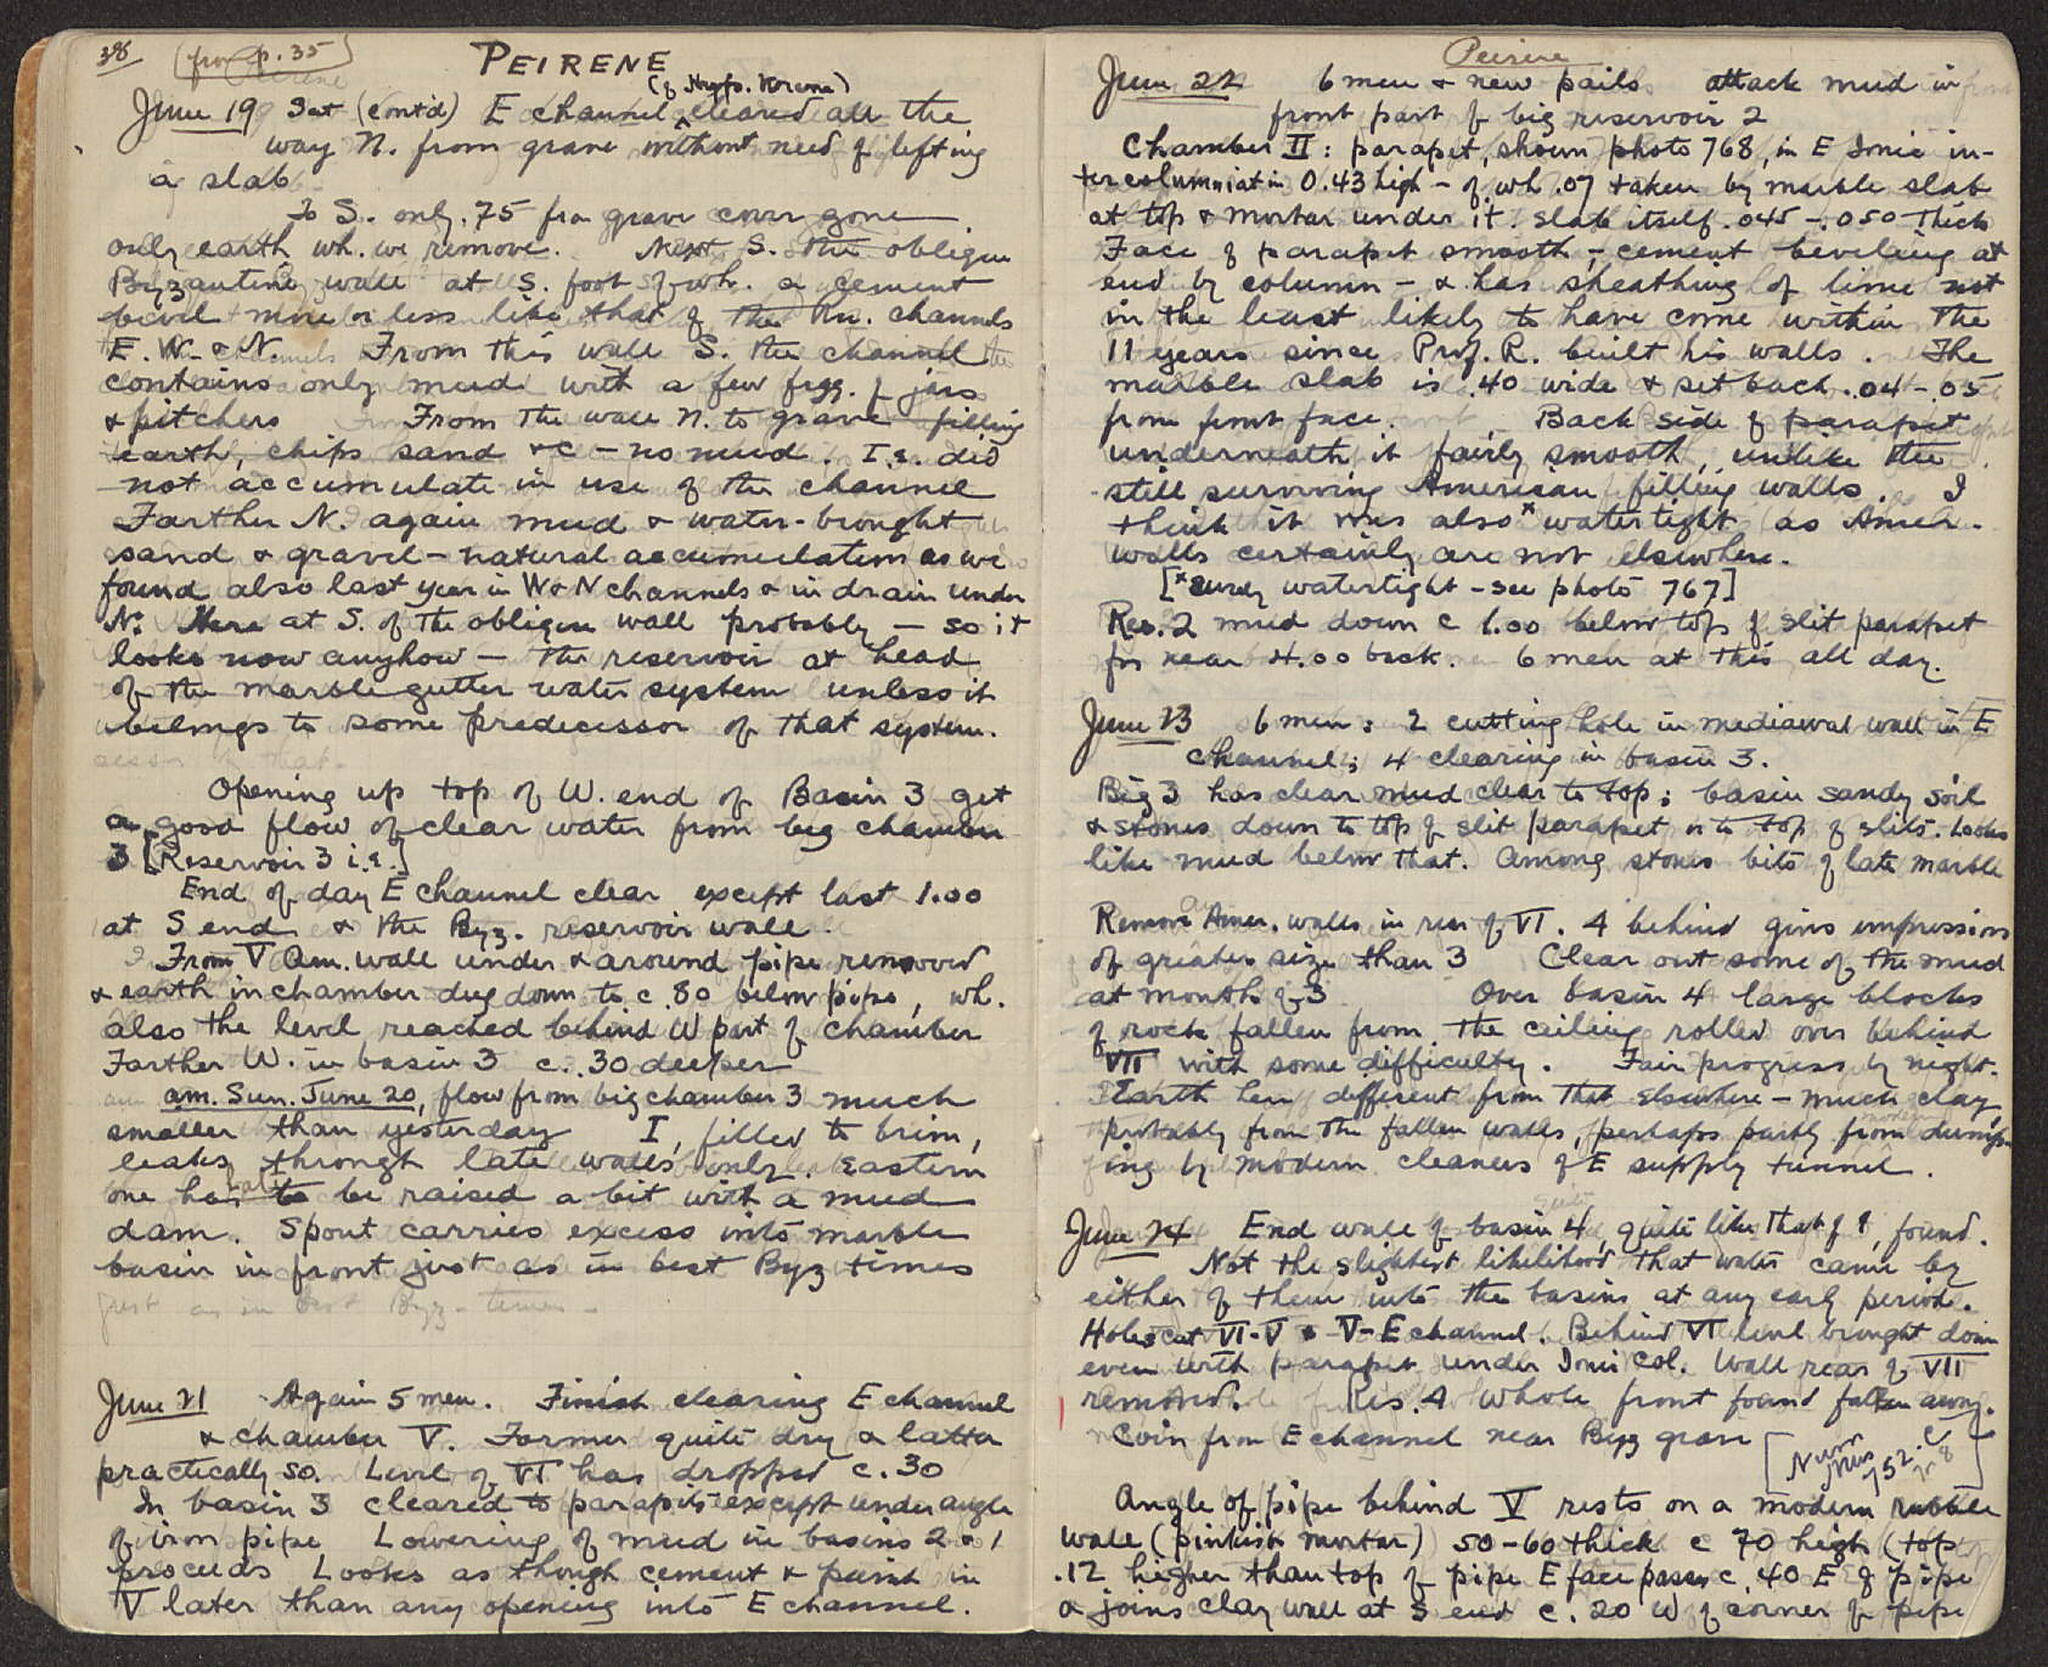 38 (from p. 35)
PEIRENE
June 19 Sat (cont'd) E channel (of Hypo. Krene) cleared all the
way N. from grave without need of lifting
a slab
To S. only .75 from grave cover gone
only earth wh. we remove. Next S. the oblique
Byzantine wall at S. foot of wh. a cement
bevel more or less like that of the Rn. channels
E. W. & N. From this wall S. the channel
contains only mud with a few frgg. of jars
& pitchers From the wall N. to grave filling
earth, chips sand &c – no mud. I.e. did
not accumulate in use of the channel
Farther N. again mud & water-brought
sand & gravel – natural accumulation as we
found also last year in W & N channels & in drain under
N. Here at S. of the oblique wall probably – so it
looks now anyhow – the reservoir at head
of the marble gutter water system unless it
belongs to some predecessor of that system.
Opening up top of W. end of Basin 3 get
a good flow of clear water from big chamber
3 [Reservoir 3 i.e.]
End of day E channel clear except last 1.00
at S end & the Byz. reservoir wall.
From V Am. wall under & around pipe removed
& earth in chamber dug down to c .80 below pipe, wh.
also the level reached behind W part of chamber
Farther W. in basin 3 c. .30 deeper
am. Sun. June 20, flow from big chamber 3 much
smaller than yesterday I, filled to brim,
leaks through late walls only. Eastern
one had to be raised a bit with a mud
dam. Spout carries excess into marble
basin in front just as in best Byz times
June 21 Again 5 men. Finish clearing E channel
& chamber V. Former quite dry & latter
practically so. Level of VI has dropped c. .30
In basin 3 cleared to parapets except under angle
of iron pipe Lowering of mud in basins 2 & 1
proceeds Looks as though cement & paint in
V later than any opening into E channel.
Peirene
June 22 6 men & new pails attack mud in
front part of big reservoir 2
Chamber II: parapet, shown photo 768, in E Ionic in-
tercolumniatin 0.43 high – of wh .07 taken by marble slab
at top & mortar under it. Slab itself .045 – .050 thick
Face of parapet smooth – cement beveling at
end by column – & has sheathing of lime not
in the least likely to have come within the
11 years since Prof. R. built his walls. The
marble slab is .40 wide & set back .04 – .05
from front face. Back side of parapet
underneath it fairly smooth, unlike the
still surviving American filling walls. I
think it was also x watertight as Amer.
walls certainly are not elsewhere.
[x surely watertight – see photo 767]
Res. 2 mud down c 1.00 below top of slit parapet
for near 4.00 back. 6 men at this all day.
June 23 6 men: 2 cutting hole in mediaeval wall in E
channel; 4 clearing in basin 3.
Big 3 has clear mud clear to top; basin sandy soil
& stones down to top of slit parapet or to top of slits. Looks
like mud below that. Among stones bits of late marble
Remove Amer. walls in rear of VI. 4 behind gives impression
of greater size than 3 Clear out some of the mud
at mouth of 3 Over basin 4 large blocks
of rock fallen from the ceiling rolled over behind
VII with some difficulty. Fair progress by night.
Earth here different from that elsewhere – much clay
probably from the fallen walls, perhaps partly from modern dump-
ing by modern cleaners of E supply tunnel.
June 24 End wall of basin 4, quite like that of 1, found.
Not the slightest likelihood that water came by
either of them into the basins at any early period.
Holes cut VI-V & V-E channel. Behind VI level brought down
even with parapet under Ionic col. Wall rear of VII
removed. Res. 4 whole front found fallen away.
Coin from E channel near Byz grave
Angle of pipe behind V rests on a modern rubble
wall (pinkish mortar) 50–60 thick c 70 high (top
.12 higher than top of pipe E face passes c .40 E of pipe
& joins clay wall at S end c. 20 W of corner of pipe